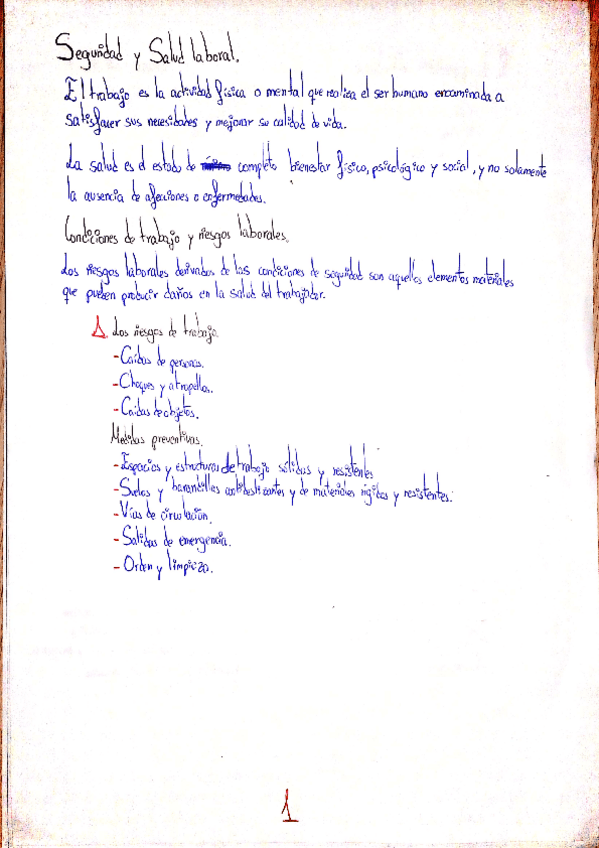 Seguridad y Salud laboral.
El trabajo es la actividad física o mental que realiza el ser humano encaminada a
satisfacer sus necesidades y mejorar su calidad de vida.
La salud es el estado de completo bienestar físico, psicológico y social, y no solamente
la ausencia de afecciones o enfermedades.
Condiciones de trabajo y riesgos laborales.
Los riesgos laborales derivados de las condiciones de seguridad son aquellos elementos materiales
que pueden producir daños en la salud del trabajador.
Los riesgos de trabajo.
-Caídas de personas.
-Choques y atropellos.
-Caídas de objetos.
Medidas preventivas.
-Espacios y estructuras de trabajo sólidas y resistentes
-Suelos y barandillas antideslizantes y de materiales rígidos y resistentes.
-Vías de circulación.
-Salidas de emergencia.
-Orden y limpieza.
1